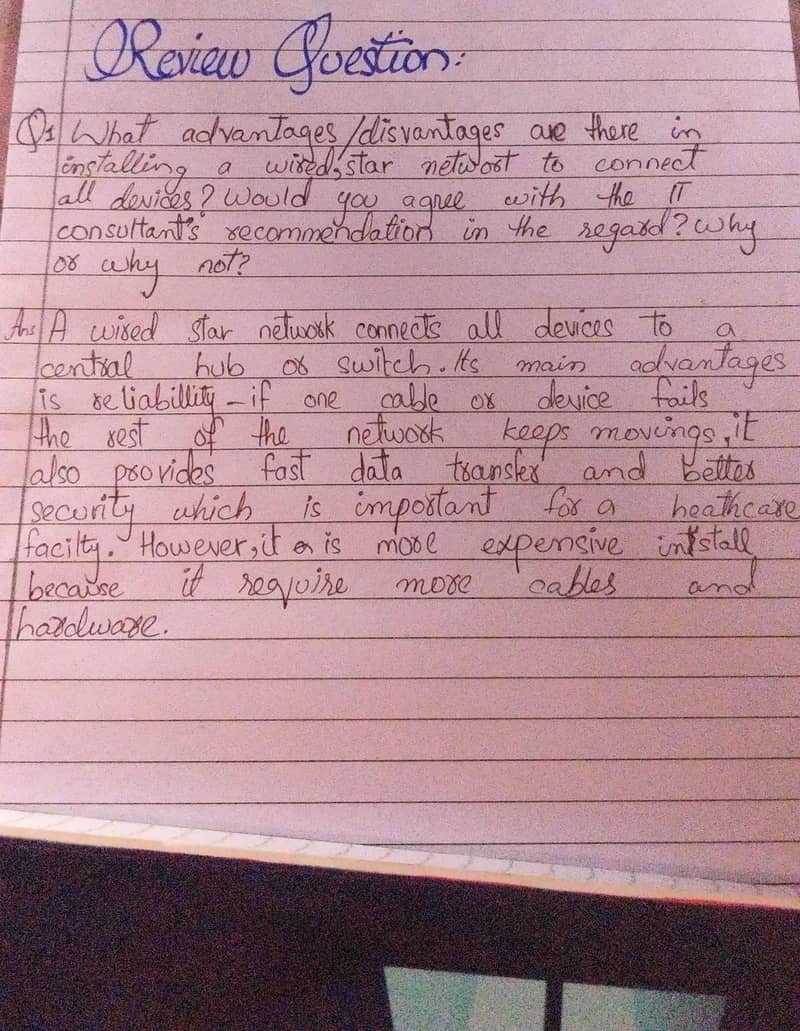 Review Question:
Q1 What advantages/disvantages are there in
installing a wired, star networt to connect
all devices? Would you agree with the IT
consultant's recommendation in the regard? Why
or why not?
Ans A wired star network connects all devices to a
central hub or switch. Its main advantages
is reliabillity - if one cable or device fails
the rest of the network keeps movings, it
also provides fast data transfer and better
security which is important for a heathcare
facilty. However, it is more expensive intstall
because it require more cables and
hardware.